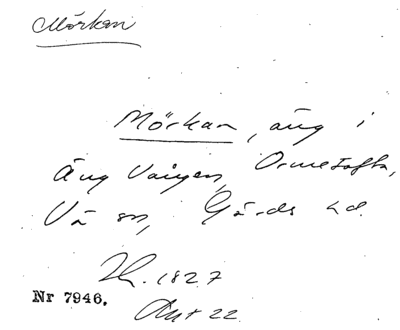 Mörkan
Mörkan, äng i
Äng Vången, Ormetofta,
Vä sn, Gärds hd.
1827
Nr 7946.
Akt 22